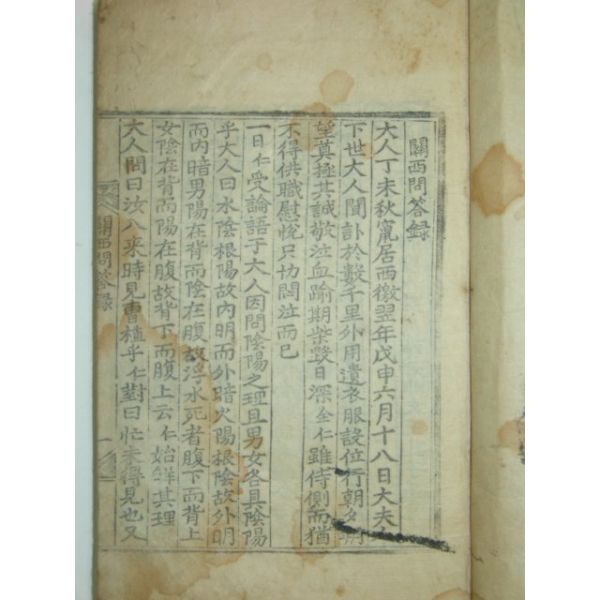 關西問答録
大人丁未秋竄居西徼翌年戊申六月十八日大夫
下世大人聞訃於數千里外用遺衣服設位行朝夕
望奠極其誠敬泣血踰期柴毁日深全仁雖侍側而猶
不得供職慰悅只切悶泣而已
一日仁受論語于大人因問陰陽之理且男女各具陰陽
乎大人曰水陰根陽故內明而外暗火陽根陰故外明
而內暗男陽在背而陰在腹故浮水死者腹下而背上
女陰在背而陽在腹故背下而腹上云仁始觧其理
大人問曰汝入来時見曹植乎仁對曰忙未得見也又
關西問答録
一